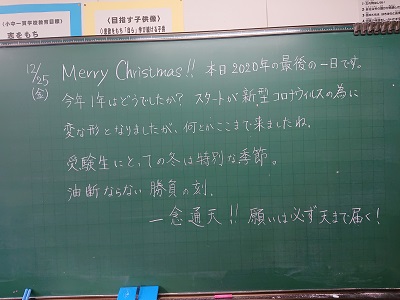 (小中一貫学校教育目標)
志をもち
《目指す子供像》
12/25
(金)
Merry Christmas!! 本日2020年の最後の一日です。
今年1年はどうでしたか? スタートが新型コロナウィルスの為に
変な形となりましたが、何とかここまで来ましたね。
受験生にとっての冬は特別な季節。
油断ならない勝負の刻。
一念通天!! 願いは必ず天まで届く!